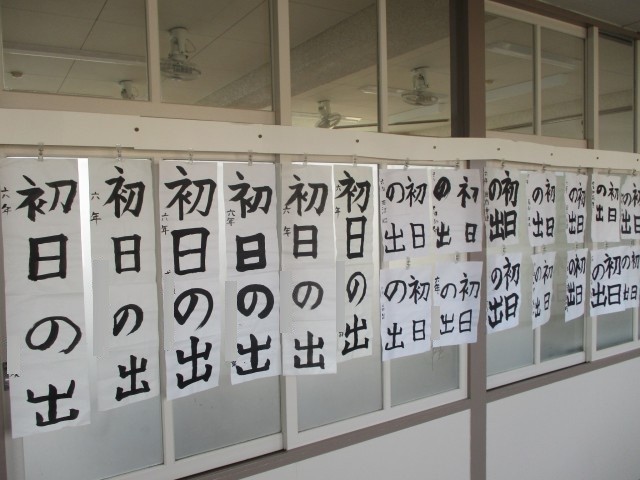 六年
初日の出
六年
初日の出
六年
初日の出
六年
初日の出
六年
初日の出
六年
初日の出
初日
の出
初日
の出
初日
の出
初日
の出
初日
の出
初日
の出
初日
の出
初日
の出
初日
の出
初日
の出
初日
の出
初日
の出
初日
の出
初日
の出